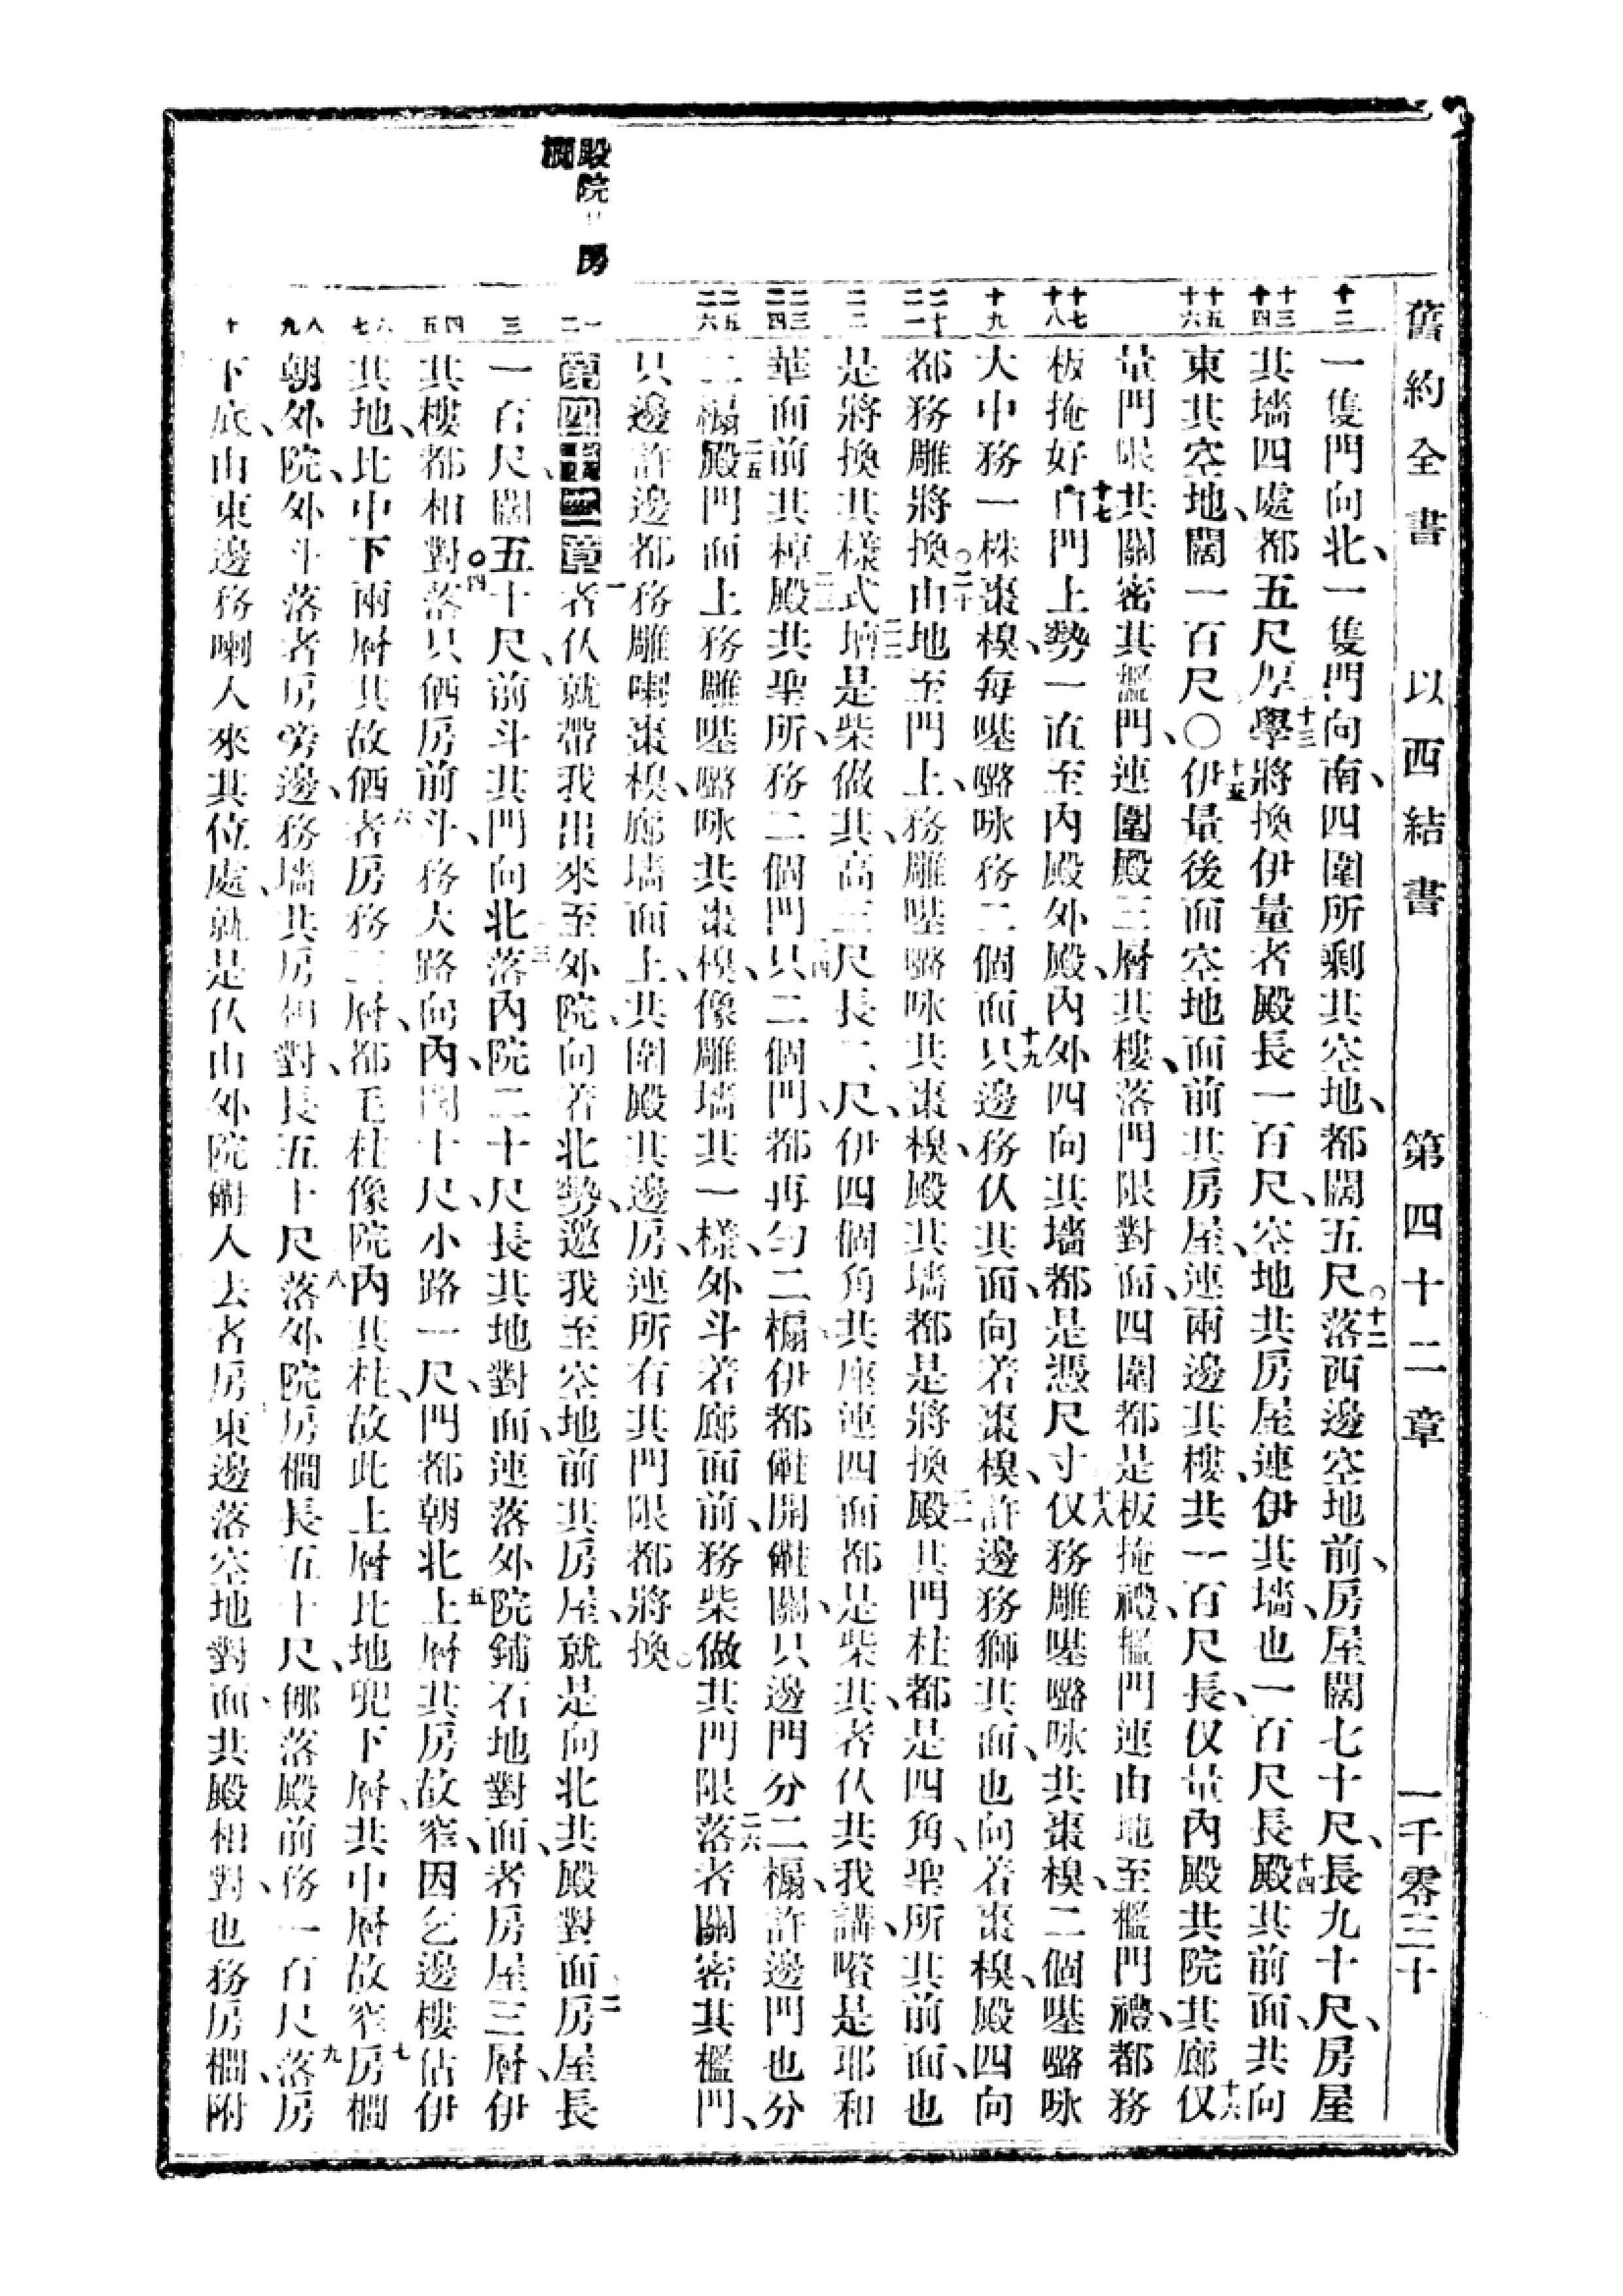 舊約全書 以西結書 第四十二章 一千零三十
殿院
房
十二
十三 十四
十五 十六
十七 十八
十九
二十 二一
二二
二三 二四
二五 二六
一 二
三
四 五
六 七
八 九
十
一隻門向北、一隻門向南、四圍所剩其空地、都闊五尺。十二落西邊空地前、房屋闊七十尺、長九十尺、房屋
其墻四處都五尺厚、十三學將換伊量者殿長一百尺、空地共房屋連伊其墻、也一百尺長、十四殿其前面、共向
東其空地、闊一百尺〇十五伊量後面空地面前其房屋、連兩邊其樓、共一百尺長、仅量內殿共院其廊、十六仅
量門限、共關密其檻門、連圍殿三層其樓、落門限對面、四圍都是板掩禮、檻門連由地至檻門、禮都務
板掩好、十七由門上勢一直至內殿外殿、內外四向其墻都是憑尺寸、十八仅務雕𠸄嚧咏共棗模、二個𠸄嚧咏
大中務一株棗模、每𠸄嚧咏務二個面、十九只邊務仈其面、向着棗模、許邊務獅其面、也向着棗模、殿四向
都務雕將換、〇二十由地至門上、務雕𠸄嚧咏共棗模、殿其墻都是將換、二一殿其門柱都是四角、聖所其前面、也
是將換其樣式、二二壇是柴做其、高三尺長二尺、伊四個角共座連四面都是柴其、者仈共我講、嚽是耶和
華面前其棹、二三殿共聖所、務二個門、二四只二個門、都再勻二楄、伊都㑚開㑚關、只邊門分二楄、許邊門也分
二楄、二五殿門面上務雕𠸄嚧咏共棗模、像雕墻其一樣、外斗着廊面前、務柴做其門限、二六落者關密其檻門、
只邊許邊都務雕喇棗模、廊墻面上、共圍殿其邊房、連所有其門限都將換。
第四十二章 一者仈就帶我出來至外院、向着北勢、邀我至空地前其房屋、就是向北共殿對面、二房屋長
一百尺、闊五十尺、前斗其門向北、三落內院二十尺長其地對面、連落外院鋪石地對面、者房屋三層、伊
其樓都相對。四落只𠆧房前斗、務大路向內、闊十尺、小路一尺、門都朝北、五上層其房故窄、因乞邊樓佔伊
其地、比中下兩層其故𠆧、六者房務三層、都毛柱像院內其柱、故此上層比地兜下層、共中層故窄、七房櫩
朝外院、外斗落者房旁邊、務墻共房相對、長五十尺、八落外院房櫩長五十尺、哪落殿前務一百尺、九落房
下底、由東邊務喇人來其位處、就是仈由外院㑚人去者房、十東邊落空地對面、共殿相對、也務房櫩、附